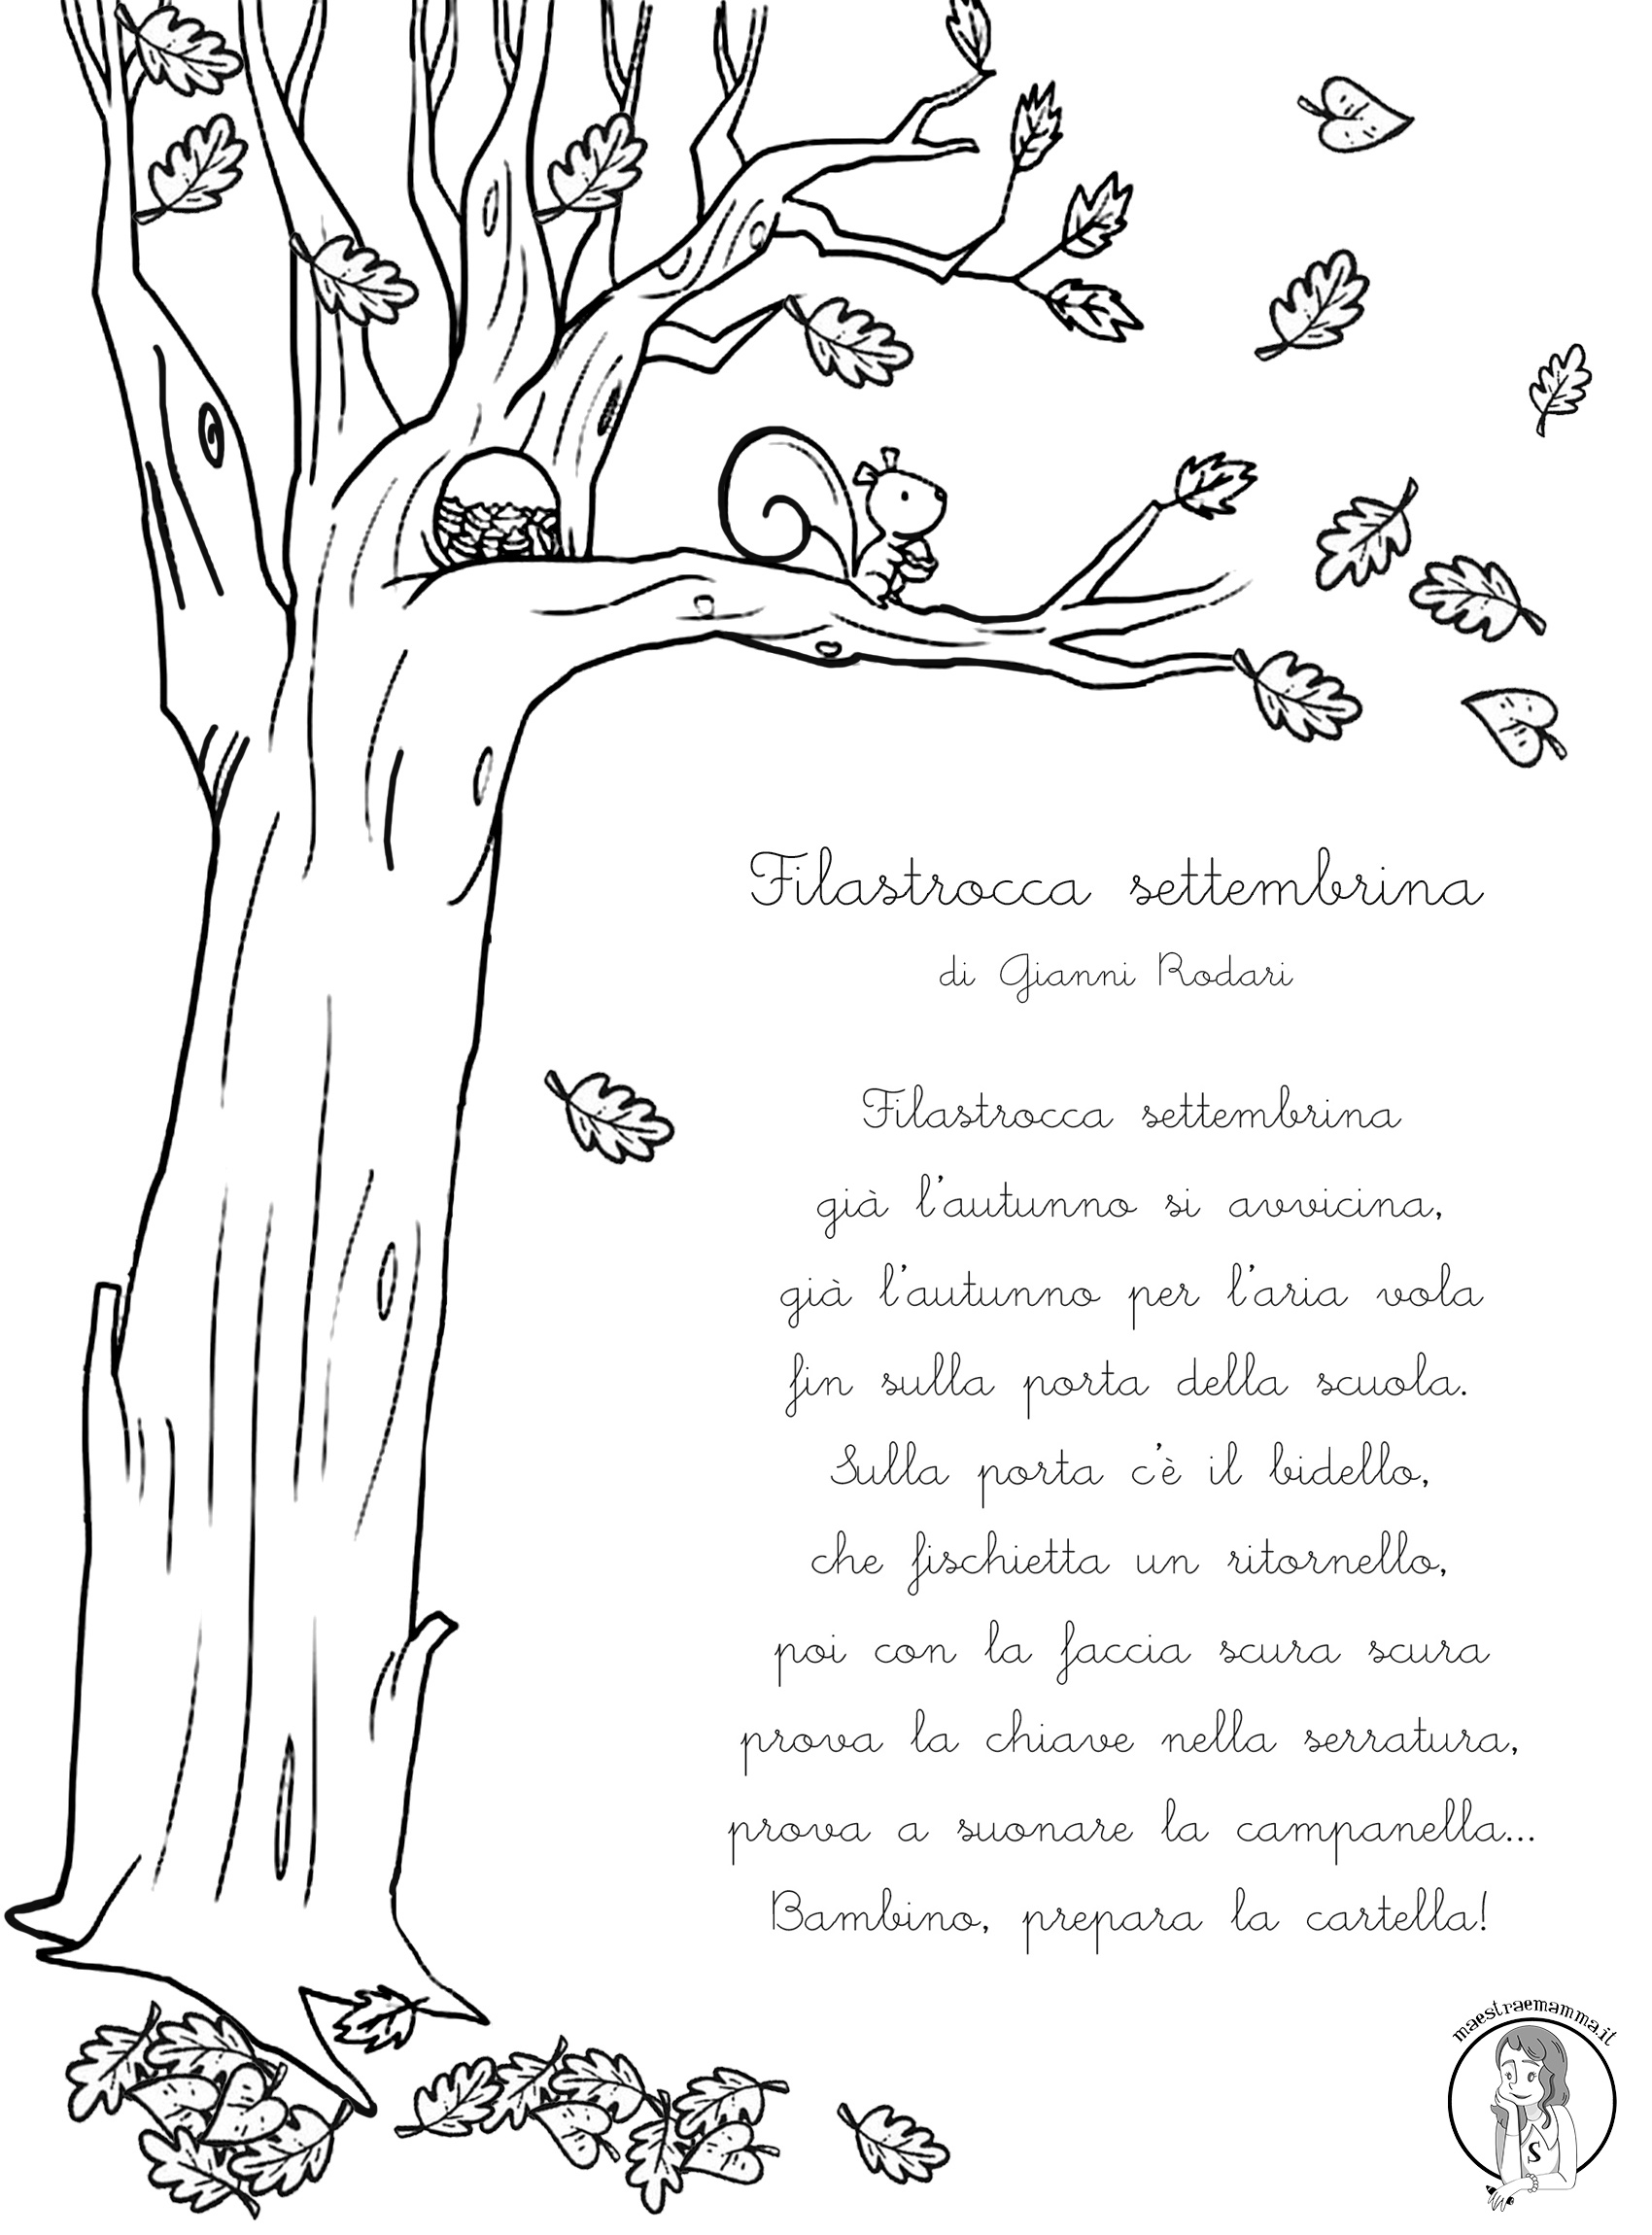 Filastrocca settembrina
di Gianni Rodari
Filastrocca settembrina
già l'autunno si avvicina,
già l'autunno per l'aria vola
fin sulla porta della scuola.
Sulla porta c'è il bidello,
che fischietta un ritornello,
poi con la faccia scura scura
prova la chiave nella serratura,
prova a suonare la campanella...
Bambino, prepara la cartella!
maestraemamma.it
S